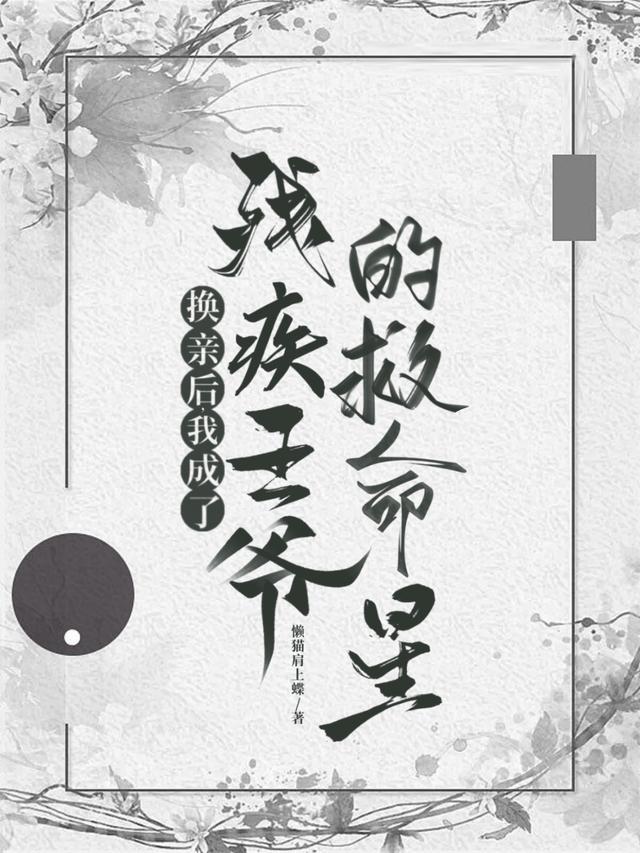 换亲后,我成了
残疾王爷
的救命星
懒猫肩上蝶/著